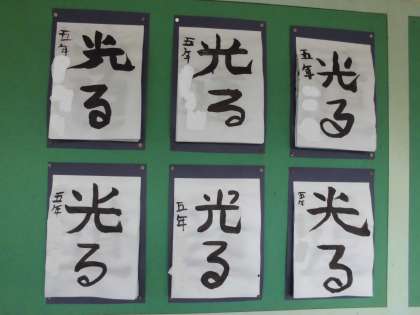 光る
五年
光る
五年
光る
五年
光る
五年
光る
五年
光る
五年